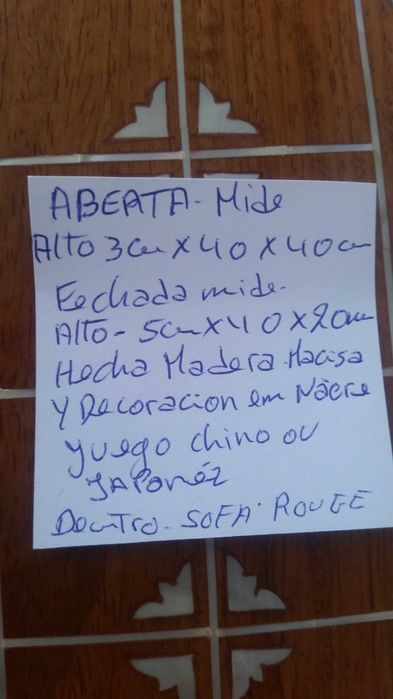 ABERTA - Mide
Alto 3cm X 40 X 40cm
Fechada mide.
Alto - 5cm X 40 X 20cm
Hecha Madera Macisa
Y Decoracion em Nácre
Yuego chino ou
JAPonéz
Dentro - SOFA. ROUGE